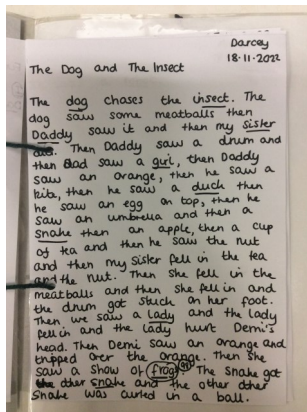 Darcey
18-11-2022
The Dog and The Insect
The dog chases the insect. The
dog saw some meatballs then
Daddy saw it and then my sister
did. Then Daddy saw a drum and
then Dad saw a girl, then Daddy
saw an orange, then he saw a
kite, then he saw a duck then
he saw an egg on top, then he
saw an umbrella and then a
snake then an apple, then a cup
of tea and then he saw the nut
and then my sister fell in the tea
and the nut. Then she fell in the
meatballs and then she fell in and
the drum got stuck on her foot.
Then we saw a lady and the lady
fell in and the lady hurt Demi's
head. Then Demi saw an orange and
tripped over the orange. Then she
saw a show of frog. The snake got
the other snake and the other other
snake was curled in a ball.